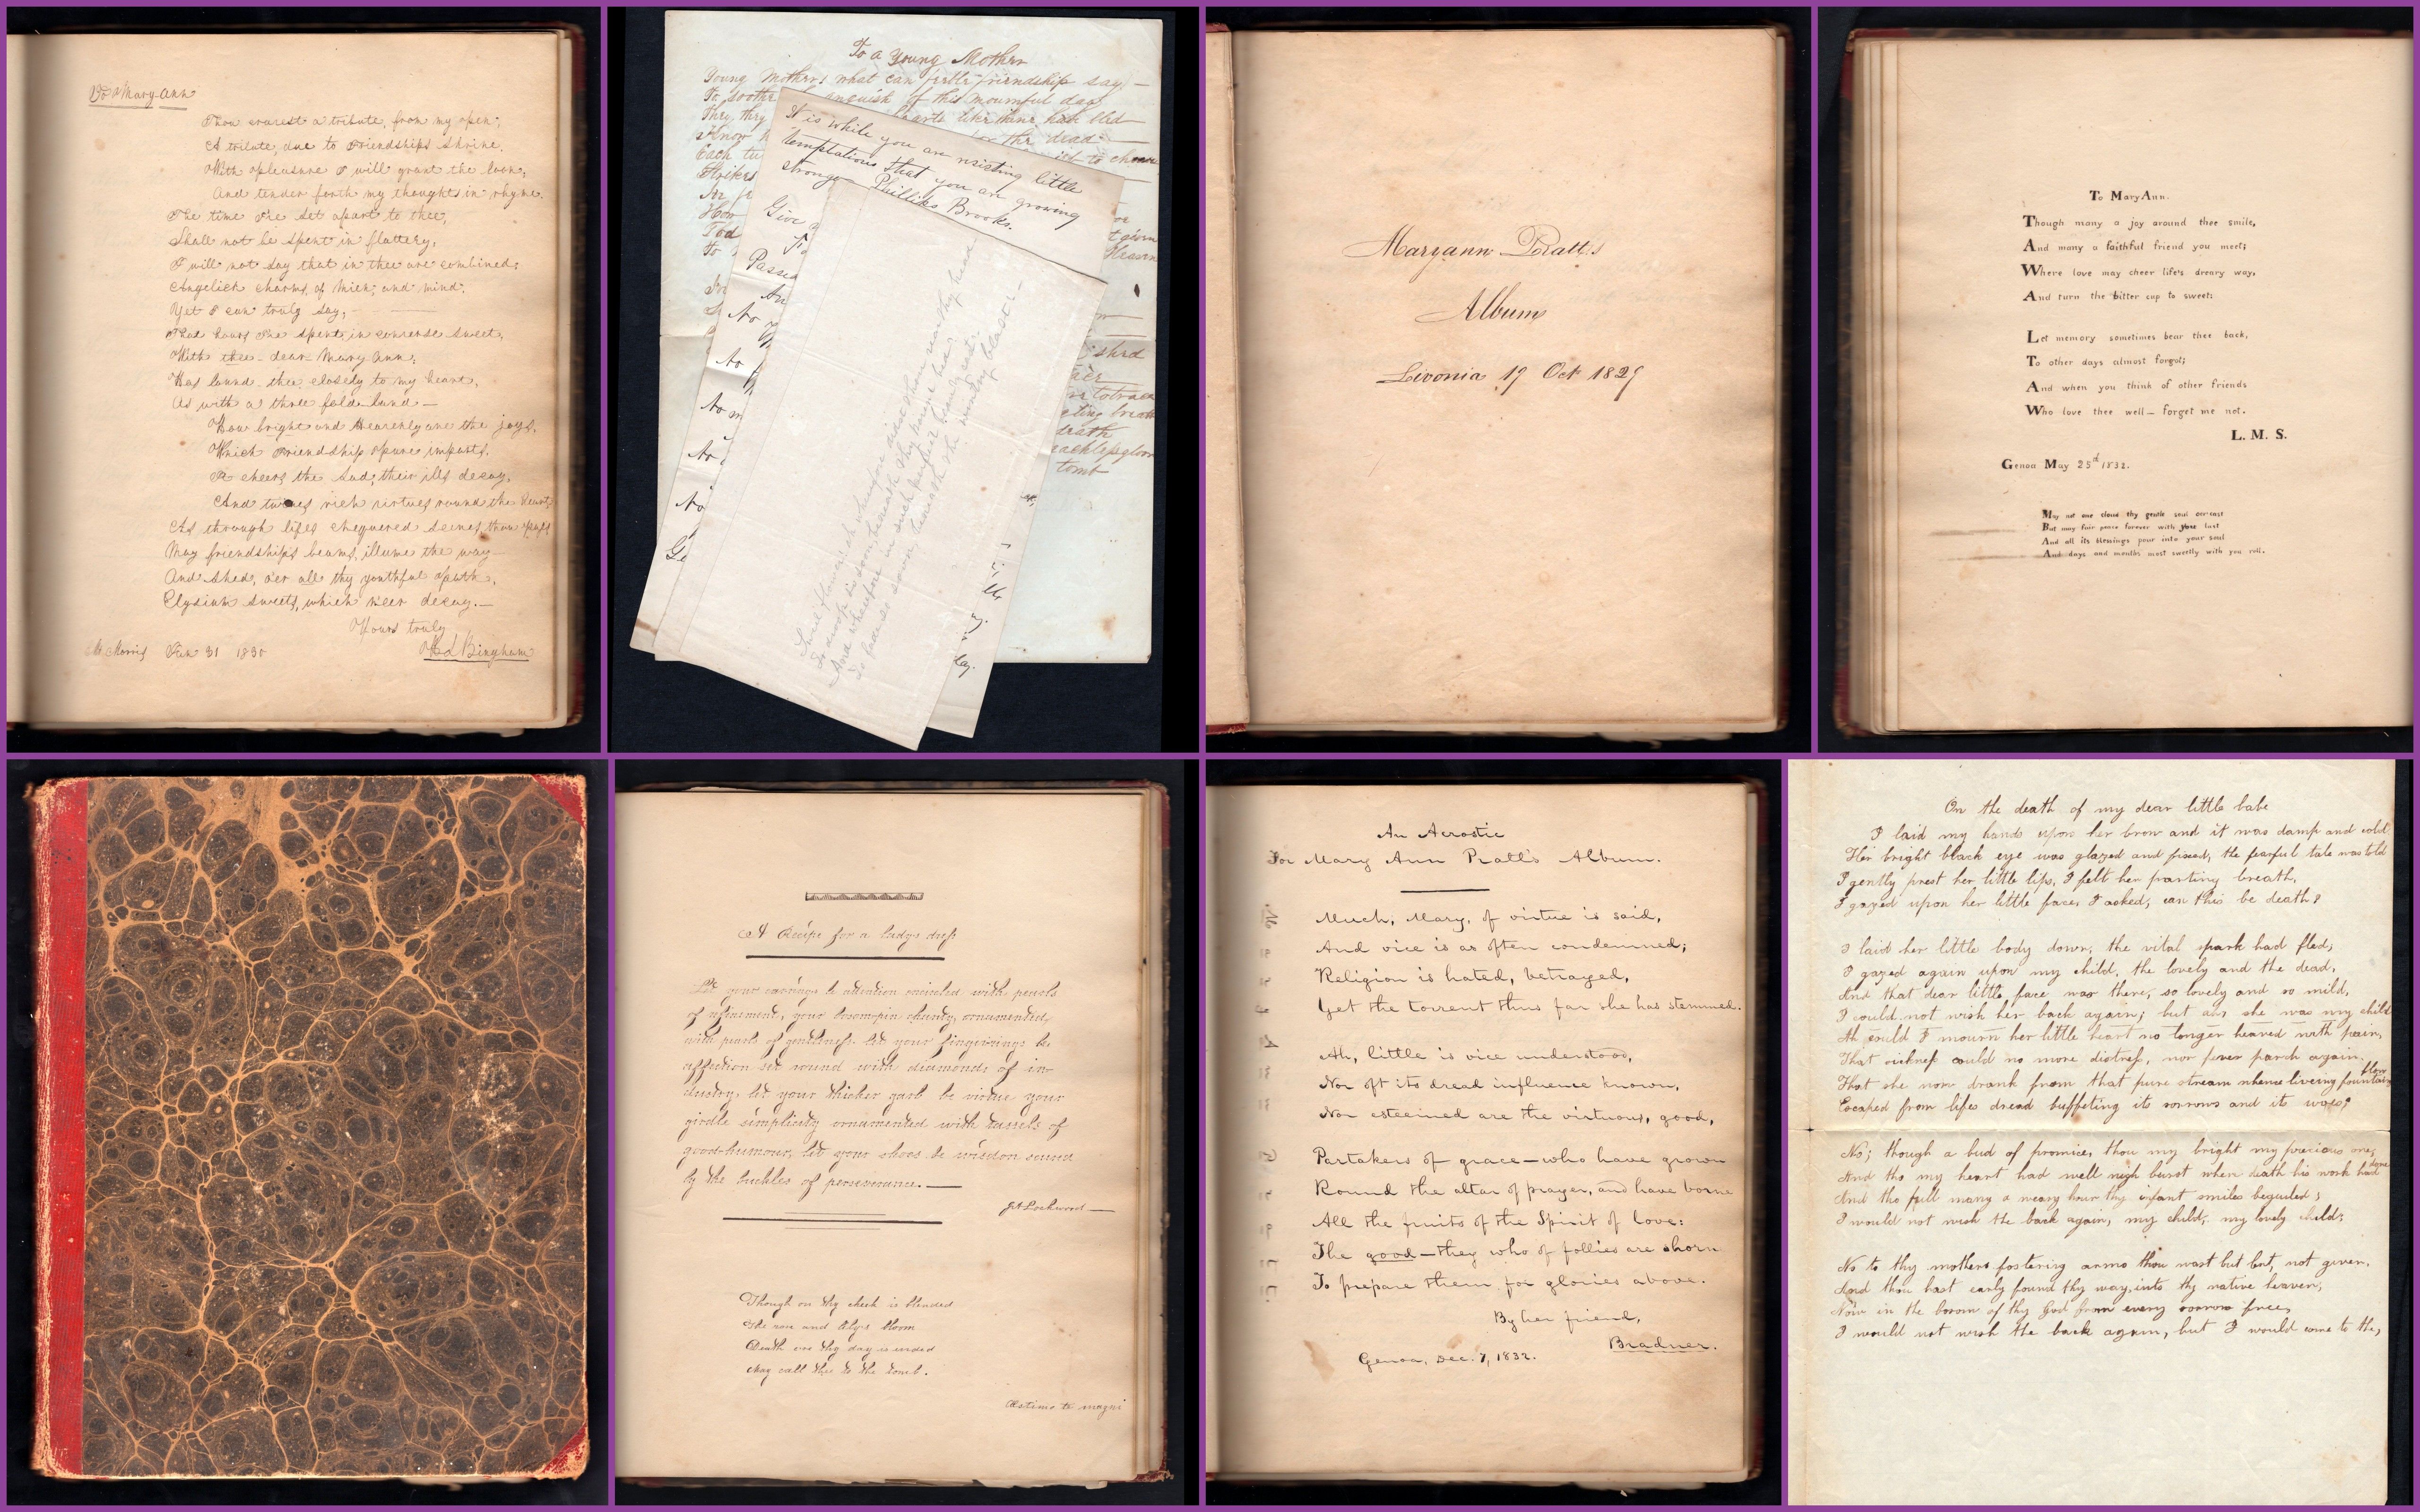 To Mary Ann
Thou cravest a tribute, from my pen;
A tribute, due to Friendships shrine,
With pleasure I will grant the boon;
And tender forth my thoughts in rhyme.
The time I've set apart to thee,
Shall not be spent in flattery,
I will not say that in thee are combined;
Angelick charms, of Mien; and mind,
Yet I can truly say;
That hours I've spent, in converse sweet,
With thee dear Mary Ann;
Has bound thee closely to my heart,
As with a three fold band —
How bright and Heavenly are the joys,
Which Friendship pure imparts,
It cheers the Sad; their ills decay,
And twines rich virtues round the heart;
As through lifes chequered scenes, thou
May friendships beams, illume the way —
And shed, o'er all thy youthful path,
Elysium sweets, which ne'er decay. —
Yours truly
Morris Jan 31 1830
Bingham
To a Young Mother
Young Mother, what can feeble friendship say, —
To soothe anguish of this mournful day
They, they hearts like thine have bled
Know the dead
Each
Strikes
How
to
Heaven
shed
death
tomb
It is while you are resisting little
temptations that you are growing
stronger Phillips Brooks.
Give
Passed
No
No
No m
No
No
Sweet flower, ah why dost thou rear thy head
To droop so soon, beneath thy parent bed
And wherefore in such perfect beauty
To fade so soon, beneath the wintry blast —
Maryann Pratt's
Album
Livonia 19 Oct 1829
To Mary Ann.
Though many a joy around thee smile,
And many a faithful friend you meet;
Where love may cheer life's dreary way,
And turn the bitter cup to sweet;
Let memory sometimes bear thee back,
To other days almost forgot;
And when you think of other friends
Who love thee well — forget me not.
L. M. S.
Genoa May 25d 1832.
May not one cloud thy gentle soul overcast
But may fair peace forever with you last
And all its blessings pour into your soul
And days and months most sweetly with you roll.
A Recipe for a ladys dress
Let your earrings be attention encircled with pearls
of refinement, your bosompin charity, ornamented,
with pearls of gentleness. let your fingerrings be
affection set round with diamonds of in-
dustry, let your thicker garb be virtue your
girdle simplicity ornamented with tassels of
good-humour, let your shoes be wisdom secured
by the buckles of perseverance. —
Lockwood —
Though on thy cheek is blended
The rose and lily's bloom
Death ere thy day is ended
May call thee to the tomb.
Æstimo te magni
An Acrostic
For Mary Ann Pratt's Album.
Much, Mary, of virtue is said,
And vice is as often condemned;
Religion is hated, betrayed,
Yet the torrent thus far she has stemmed.
Ah, little is vice understood,
Nor oft its dread influence known,
Nor esteemed are the virtuous, good,
Partakers of grace — who have grown
Round the altar of prayer, and have borne
All the fruits of the Spirit of Love:
The good — they who of follies are shorn
To prepare them for glories above.
By her friend,
Bradner.
Genoa, Dec. 7, 1832.
On the death of my dear little babe
I laid my hands upon her brow and it was damp and cold
Her bright black eye was glazed and fixed, the fearful tale was told
I gently prest her little lips, I felt her parting breath,
I gazed upon her little face, I asked, can this be death?
I laid her little body down, the vital spark had fled,
I gazed again upon my child, the lovely and the dead,
And that dear little face was there, so lovely and so mild,
I could not wish her back again; but ah, she was my child
Ah could I mourn her little heart no longer heaved with pain,
That sickness could no more distress, nor fever parch again.
That she now drank from that pure stream whence liveing fountains flow
Escaped from lifes dread buffeting its sorrows and its woes?
No; though a bud of promise, thou my bright my precious one,
And tho my heart had well nigh burst when death his work had done
And tho full many a weary hour thy infant smiles beguiled;
I would not wish the back again, my child, my lovely child;
No to thy mothers fostering arms thou wast but lent, not given,
And thou hast early found thy way, into thy native heaven,
Now in the bosom of thy God from every sorrow free,
I would not wish the back again, but I would come to the,